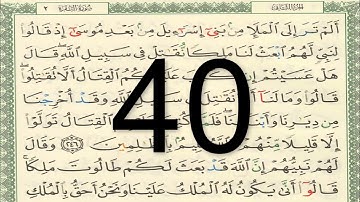 سورة البقرة ٢
ألم تر إلى الملإ من بني إسرءيل من بعد موسى إذ قالوا
لنبي لهم ابعث لنا ملكا نقتل في سبيل الله قال
هل عسيتم إن كتب عليكم القتال ألا تقتلوا
قالوا وما لنا ألا نقتل في سبيل الله وقد أخرجنا
من ديرنا وأبنائنا القتال تولوا
إلا قليلا منهم بالظلمين ٢٤٦ وقال
لهم نبيهم إن الله قد بعث لكم طالوت ملكا
قالوا أنى يكون له الملك علينا ونحن أحق بالملك
40